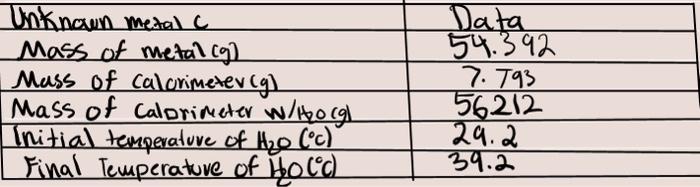 Unknown metal C Data
Mass of metal (g) 54.392
Mass of calorimeter (g) 7.793
Mass of Calorimeter w/H2O (g) 56212
Initial temperature of H2O (°C) 29.2
Final Temperature of H2O (°C) 39.2